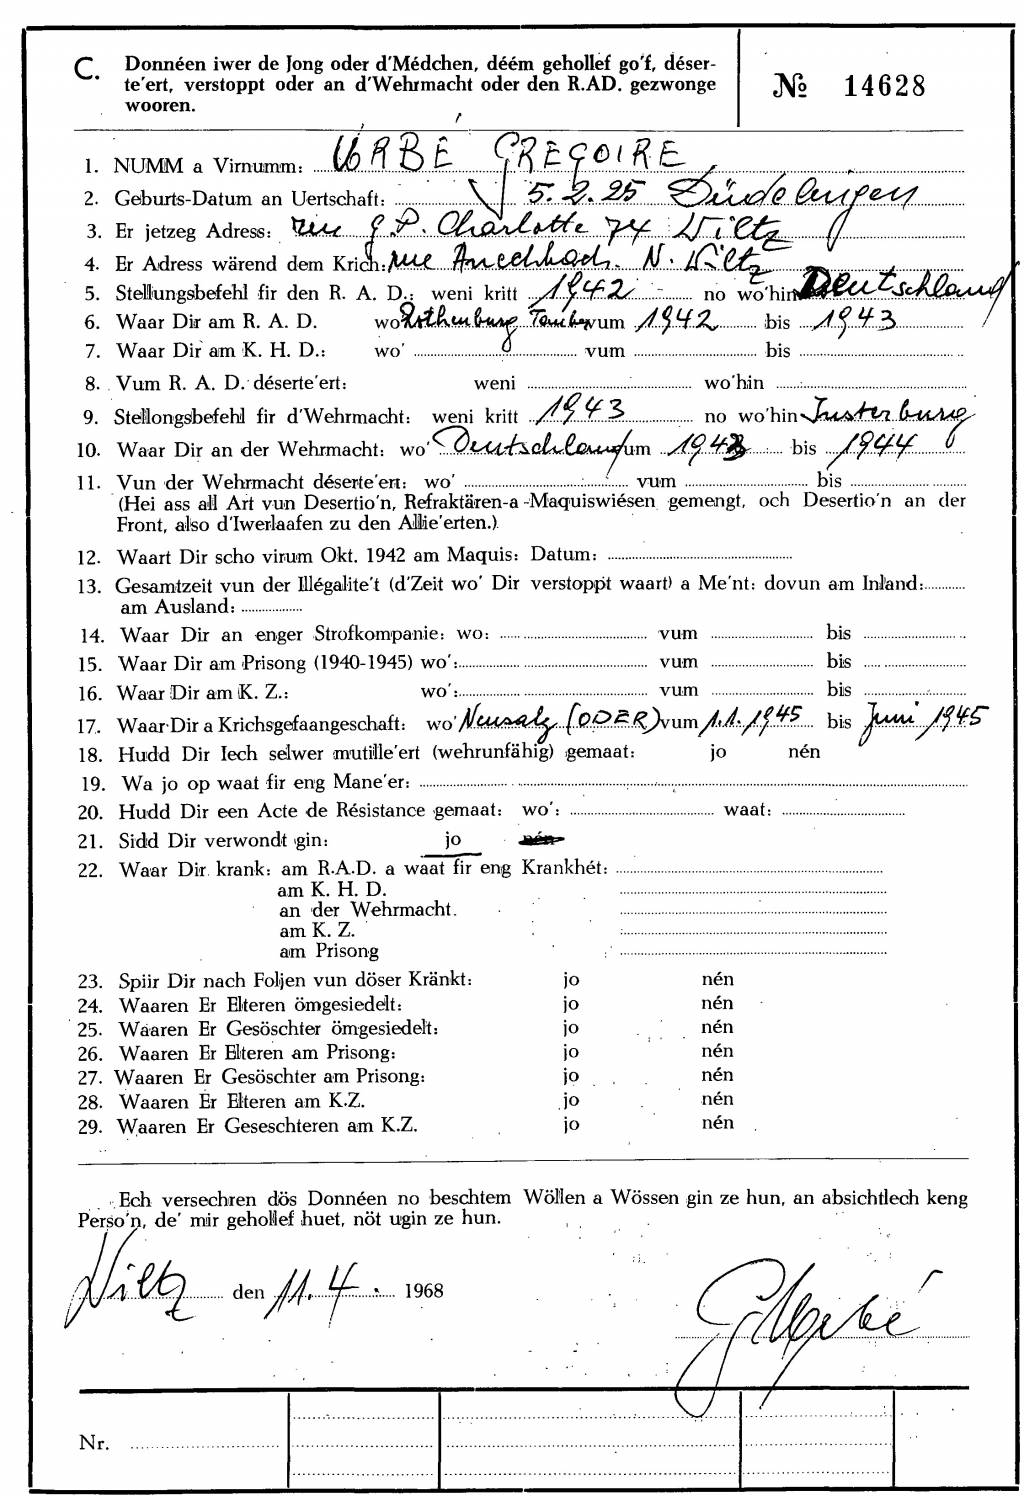 C. Donnéen iwer de Jong oder d'Médchen, déém gehollef go'f, déser-
te'ert, verstoppt oder an d'Wehrmacht oder den R.AD. gezwonge
wooren.
№ 14628
1. NUMM a Virnumm: URBÉ GREGOIRE
2. Geburts-Datum an Uertschaft: 5.2.25 Düdelingen
3. Er jetzeg Adress: rue G.D. Charlotte 74 Wiltz
4. Er Adress wärend dem Krich: rue N. Wiltz
5. Stellungsbefehl fir den R. A. D.: weni kritt 1942 no wo'hin Deutschland
6. Waar Dir am R. A. D. wo' Rothenburg Tauber vum 1942 bis 1943
7. Waar Dir am K. H. D.: wo' vum bis
8. Vum R. A. D. déserte'ert: weni wo'hin
9. Stellongsbefehl fir d'Wehrmacht: weni kritt 1943 no wo'hin Insterburg
10. Waar Dir an der Wehrmacht: wo' Deutschland vum 1943 bis 1944
11. Vun der Wehrmacht déserte'ert: wo' vum bis
(Hei ass all Art vun Desertio'n, Refraktären-a-Maquiswiésen gemengt, och Desertio'n an der
Front, also d'Iwerlaafen zu den Allie'erten.)
12. Waart Dir scho virum Okt. 1942 am Maquis: Datum:
13. Gesamtzeit vun der Illégalite't (d'Zeit wo' Dir verstoppt waart) a Me'nt: dovun am Inland:
am Ausland:
14. Waar Dir an enger Strofkompanie: wo: vum bis
15. Waar Dir am Prisong (1940-1945) wo': vum bis
16. Waar Dir am K. Z.: wo': vum bis
17. Waar Dir a Krichsgefaangeschaft: wo' Neusalz (ODER) vum 1.1.1945 bis Juni 1945
18. Hudd Dir Iech selwer mutille'ert (wehrunfähig) gemaat: jo nén
19. Wa jo op waat fir eng Mane'er:
20. Hudd Dir een Acte de Résistance gemaat: wo': waat:
21. Sidd Dir verwondt gin: jo nén
22. Waar Dir krank: am R.A.D. a waat fir eng Krankhét:
am K. H. D.
an der Wehrmacht.
am K. Z.
am Prisong
23. Spiir Dir nach Foljen vun döser Kränkt: jo nén
24. Waaren Er Elteren ömgesiedelt: jo nén
25. Waaren Er Gesöschter ömgesiedelt: jo nén
26. Waaren Er Elteren am Prisong: jo nén
27. Waaren Er Gesöschter am Prisong: jo nén
28. Waaren Er Elteren am K.Z. jo nén
29. Waaren Er Geseschteren am K.Z. jo nén
Ech versechren dös Donnéen no beschtem Wöllen a Wössen gin ze hun, an absichtlech keng
Perso'n, de' mir gehollef huet, nöt ugin ze hun.
Wiltz den 11.4. 1968
G Urbé
Nr.